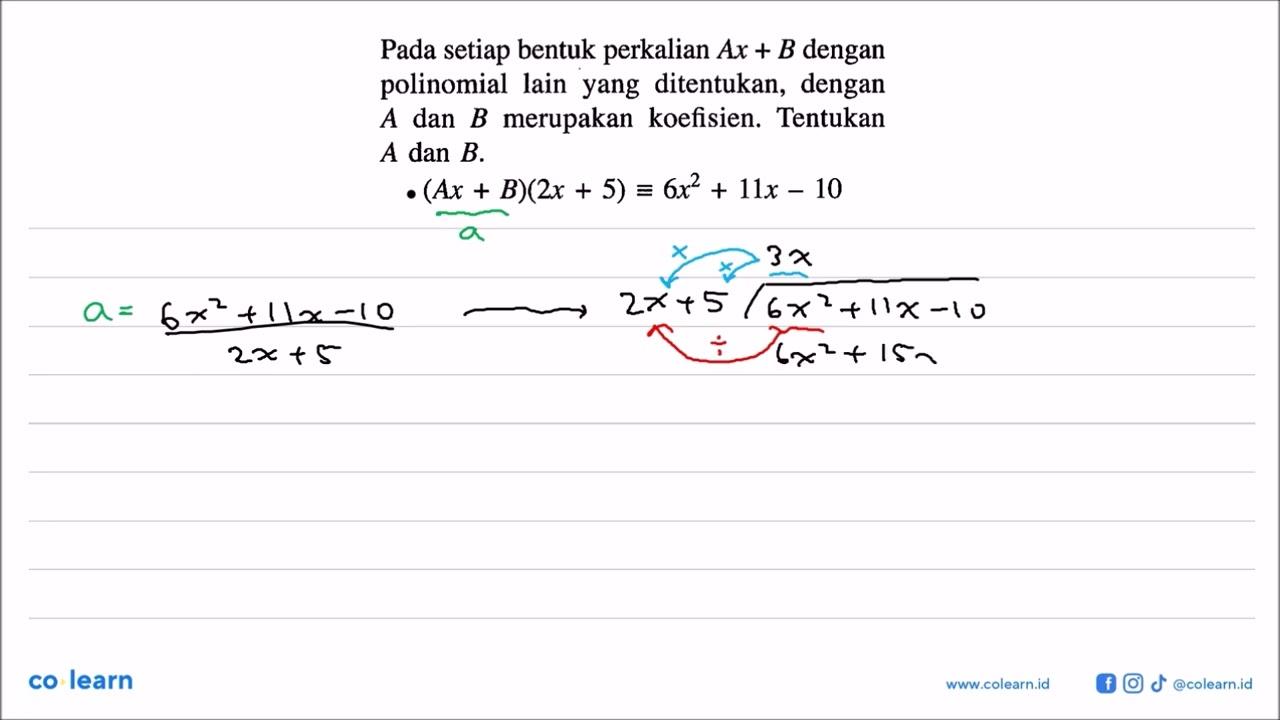 Pada setiap bentuk perkalian Ax + B dengan
polinomial lain yang ditentukan, dengan
A dan B merupakan koefisien. Tentukan
A dan B.
• (Ax + B)(2x + 5) ≡ 6x² + 11x – 10
a
x x 3x
a = 6x² + 11x – 10
2x + 5
2x + 5 / 6x² + 11x – 10
÷ 6x² + 15
co·learn
www.colearn.id @colearn.id